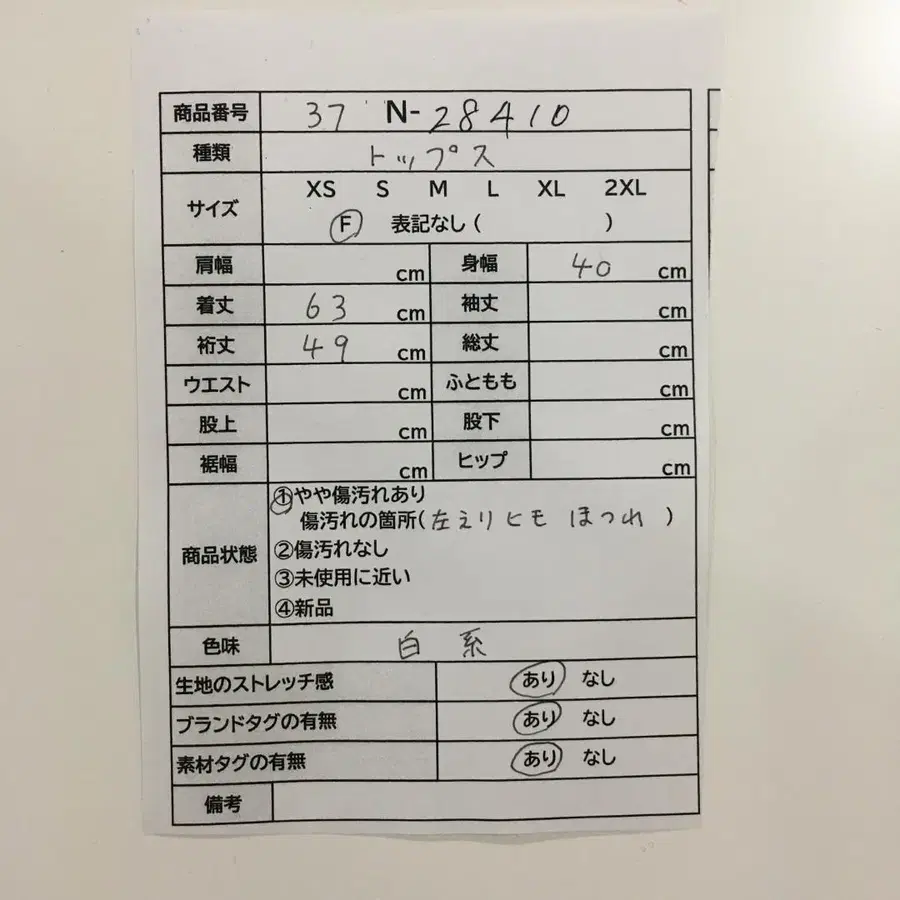 商品番号 37 N-28410
種類 トップス
サイズ XS S M L XL 2XL
F 表記なし( )
肩幅 cm 身幅 40 cm
着丈 63 cm 袖丈 cm
裄丈 49 cm 総丈 cm
ウエスト cm ふともも cm
股上 cm 股下 cm
裾幅 cm ヒップ cm
商品状態 ①やや傷汚れあり
傷汚れの箇所(左えりヒモ ほつれ )
②傷汚れなし
③未使用に近い
④新品
色味 白系
生地のストレッチ感 あり なし
ブランドタグの有無 あり なし
素材タグの有無 あり なし
備考